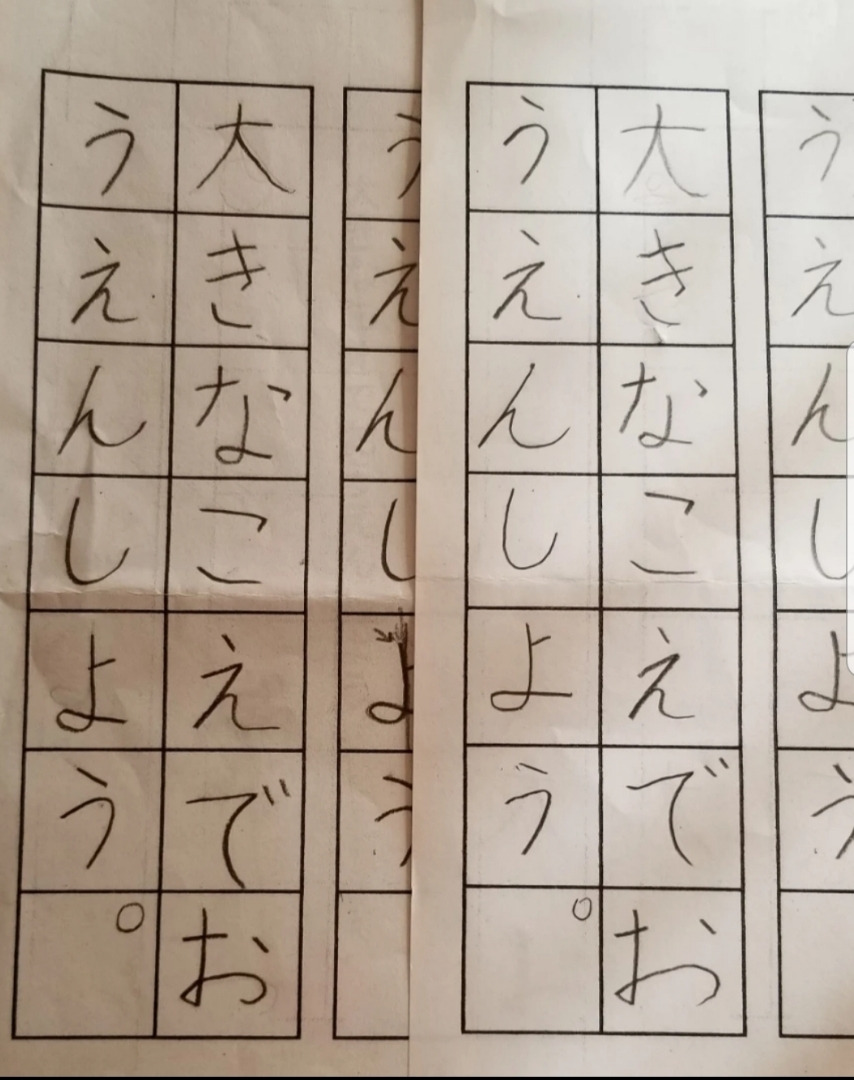 うえんしよう
大きなこえでお
うえんしよう。
うえんしよう
大きなこえでお
うえんしよう。